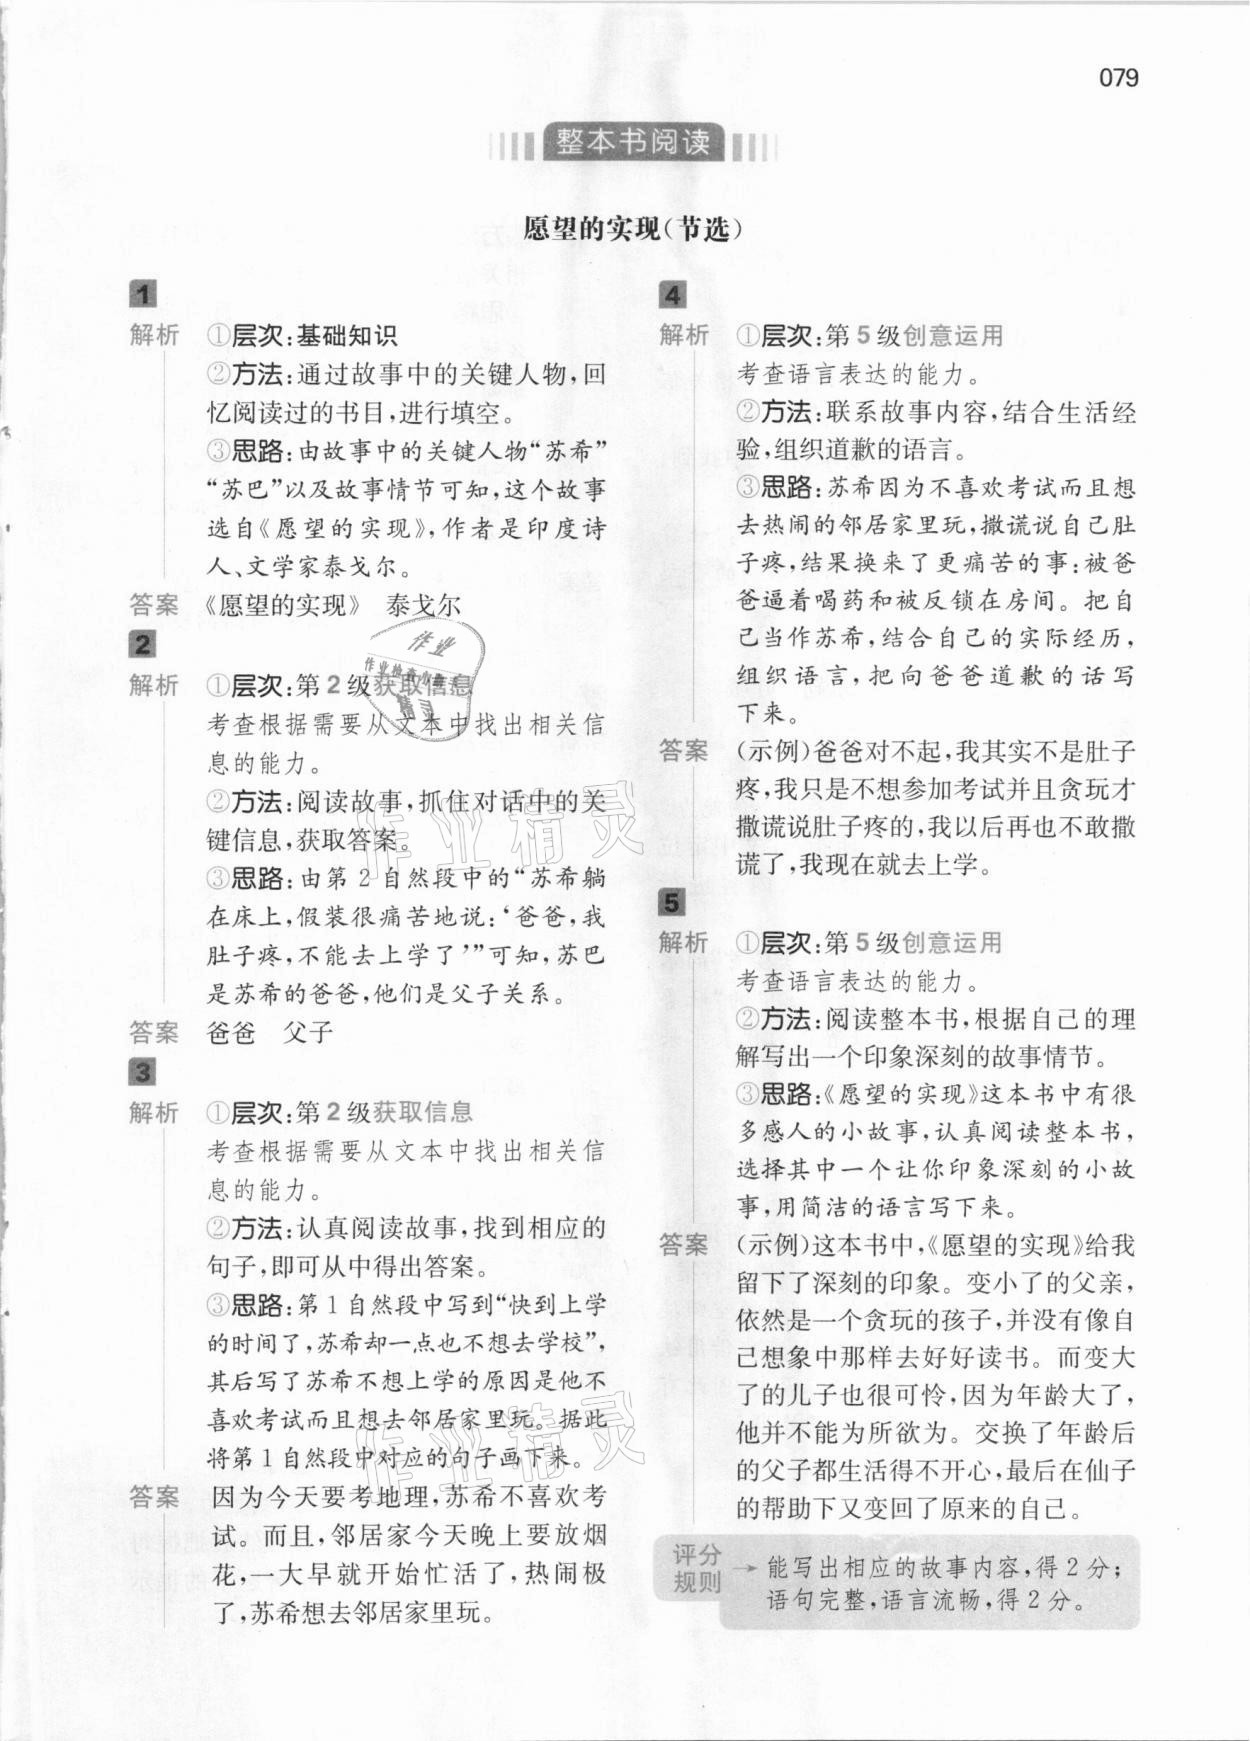 079
整本书阅读
愿望的实现(节选)
1
解析 ①层次:基础知识
②方法:通过故事中的关键人物,回
忆阅读过的书目,进行填空。
③思路:由故事中的关键人物“苏希”
“苏巴”以及故事情节可知,这个故事
选自《愿望的实现》,作者是印度诗
人、文学家泰戈尔。
答案 《愿望的实现》 泰戈尔
2
解析 ①层次:第2级获取信息
考查根据需要从文本中找出相关信
息的能力。
②方法:阅读故事,抓住对话中的关
键信息,获取答案。
③思路:由第2自然段中的“苏希躺
在床上,假装很痛苦地说:‘爸爸,我
肚子疼,不能去上学了’”可知,苏巴
是苏希的爸爸,他们是父子关系。
答案 爸爸 父子
3
解析 ①层次:第2级获取信息
考查根据需要从文本中找出相关信
息的能力。
②方法:认真阅读故事,找到相应的
句子,即可从中得出答案。
③思路:第1自然段中写到“快到上学
的时间了,苏希却一点也不想去学校”,
其后写了苏希不想上学的原因是他不
喜欢考试而且想去邻居家里玩。据此
将第1自然段中对应的句子画下来。
答案 因为今天要考地理,苏希不喜欢考
试。而且,邻居家今天晚上要放烟
花,一大早就开始忙活了,热闹极
了,苏希想去邻居家里玩。
4
解析 ①层次:第5级创意运用
考查语言表达的能力。
②方法:联系故事内容,结合生活经
验,组织道歉的语言。
③思路:苏希因为不喜欢考试而且想
去热闹的邻居家里玩,撒谎说自己肚
子疼,结果换来了更痛苦的事:被爸
爸逼着喝药和被反锁在房间。把自
己当作苏希,结合自己的实际经历,
组织语言,把向爸爸道歉的话写
下来。
答案 (示例)爸爸对不起,我其实不是肚子
疼,我只是不想参加考试并且贪玩才
撒谎说肚子疼的,我以后再也不敢撒
谎了,我现在就去上学。
5
解析 ①层次:第5级创意运用
考查语言表达的能力。
②方法:阅读整本书,根据自己的理
解写出一个印象深刻的故事情节。
③思路:《愿望的实现》这本书中有很
多感人的小故事,认真阅读整本书,
选择其中一个让你印象深刻的小故
事,用简洁的语言写下来。
答案 (示例)这本书中,《愿望的实现》给我
留下了深刻的印象。变小了的父亲,
依然是一个贪玩的孩子,并没有像自
己想象中那样去好好读书。而变大
了的儿子也很可怜,因为年龄大了,
他并不能为所欲为。交换了年龄后
的父子都生活得不开心,最后在仙子
的帮助下又变回了原来的自己。
评分
规则
→ 能写出相应的故事内容,得2分;
语句完整,语言流畅,得2分。
作业
作业检查小助手
精灵
作业精灵
作业精灵